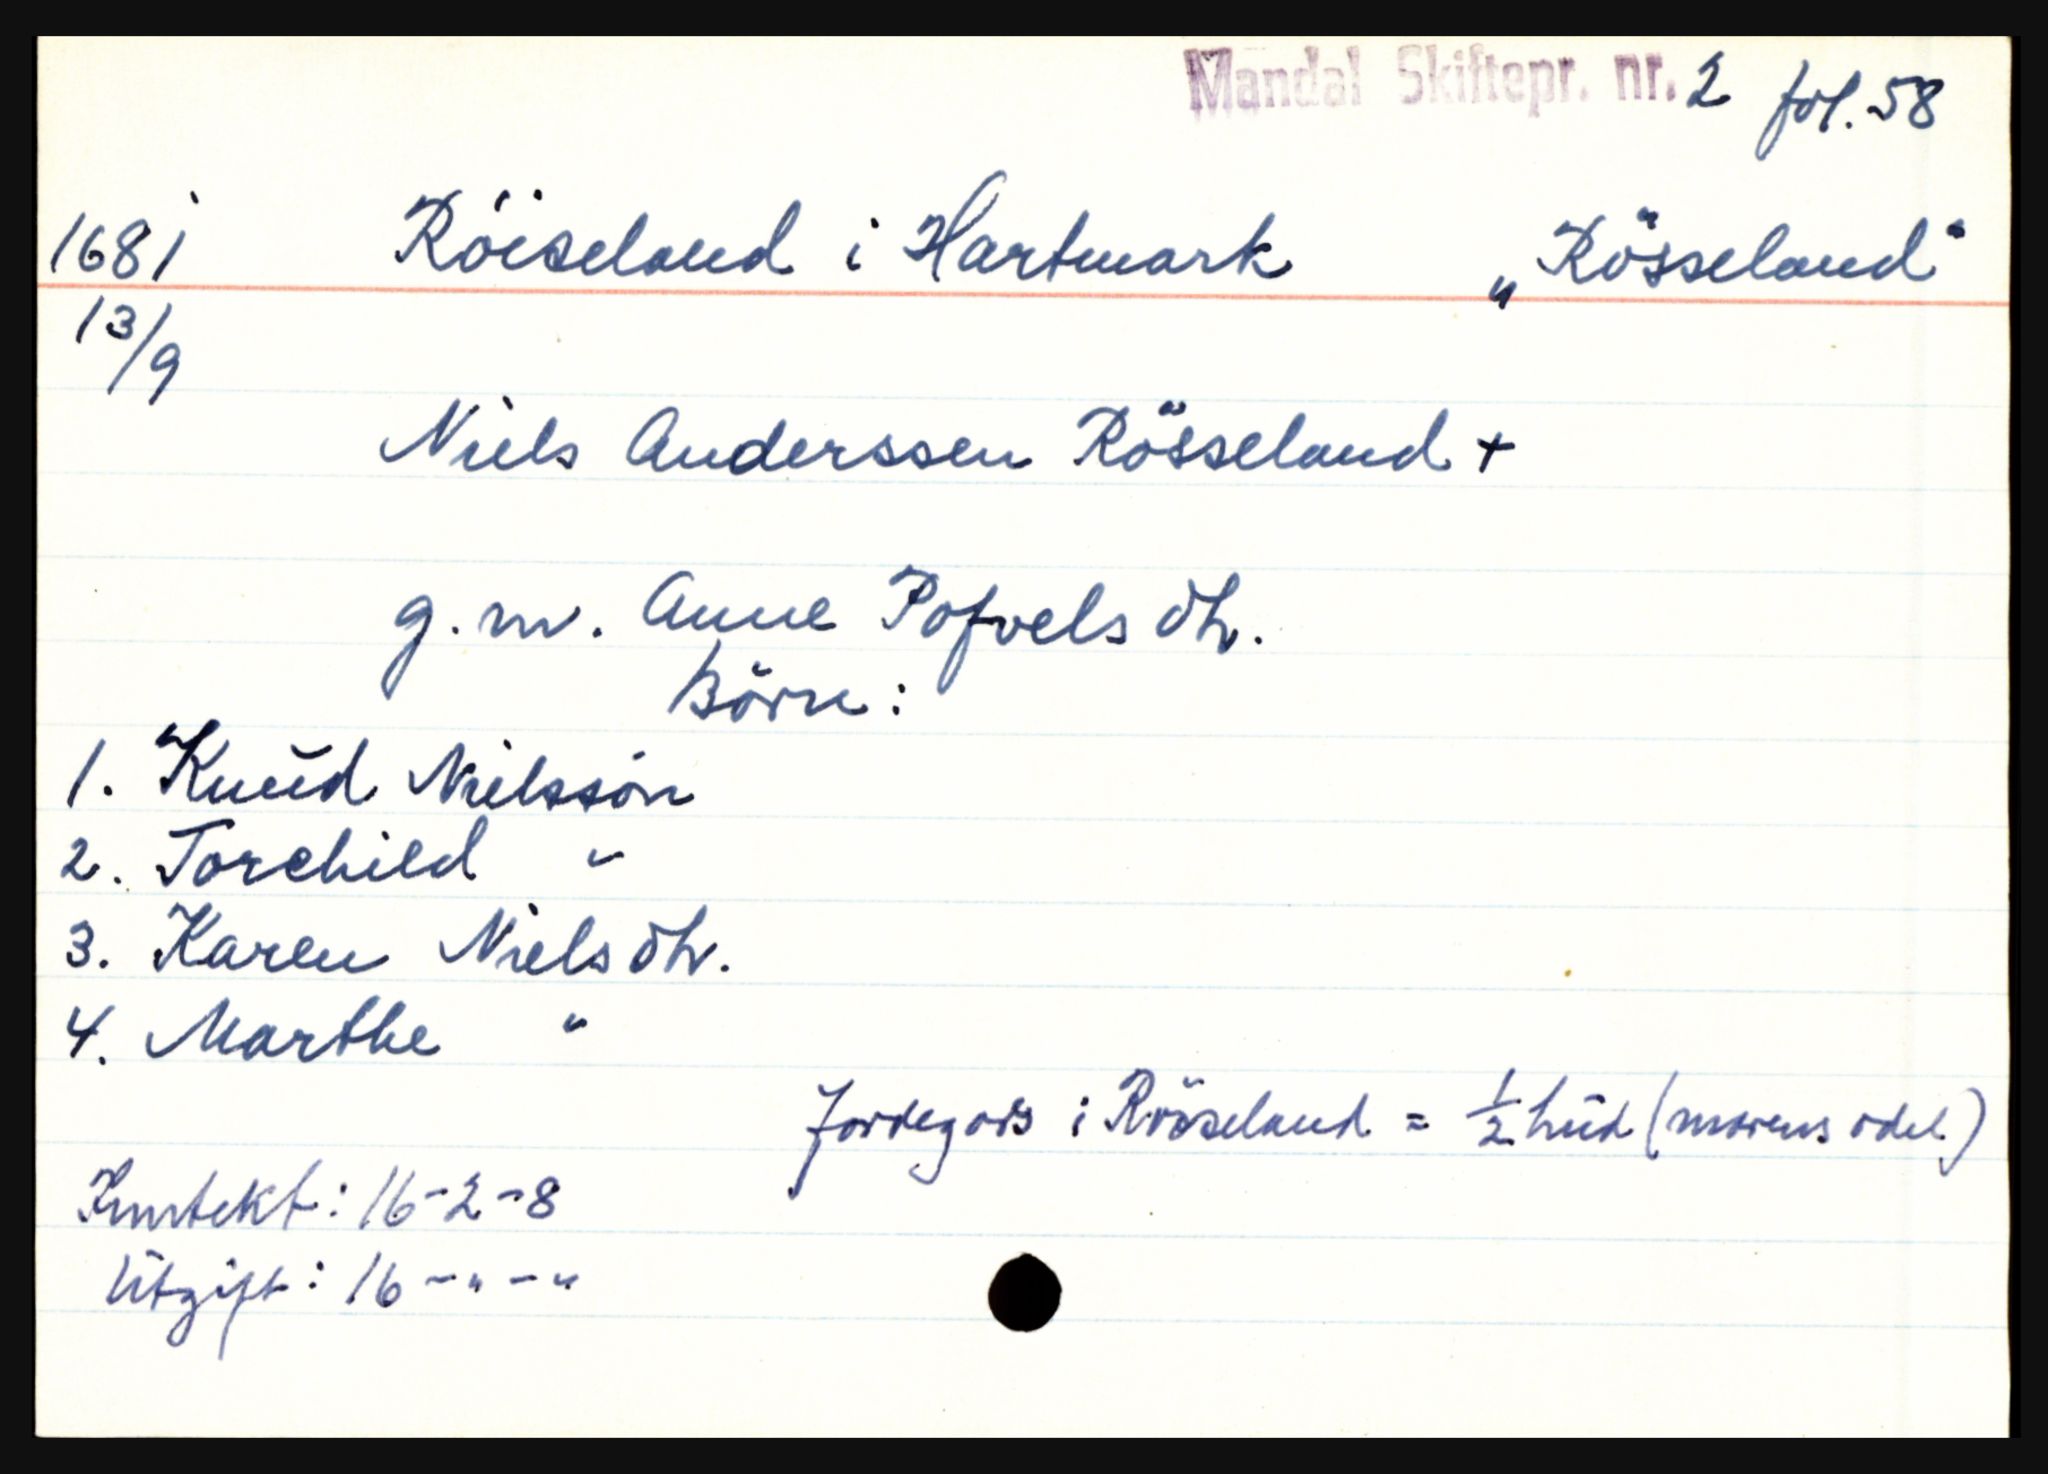 Mandal Skiftepr. nr. 2 fol. 58
1681 Röiseland i Hartmark „Rösseland"
13/9
Niels Anderssen Rösseland +
g. m. Anne Pofvels dtr.
Börn:
1. Knud Nielssön
2. Torchild "
3. Karen Niels dtr.
4. Marthe "
Jordegods i Röiseland = 1/2 hud (morens odel)
Inntekt: 16-2-8
Utgift: 16-"-"